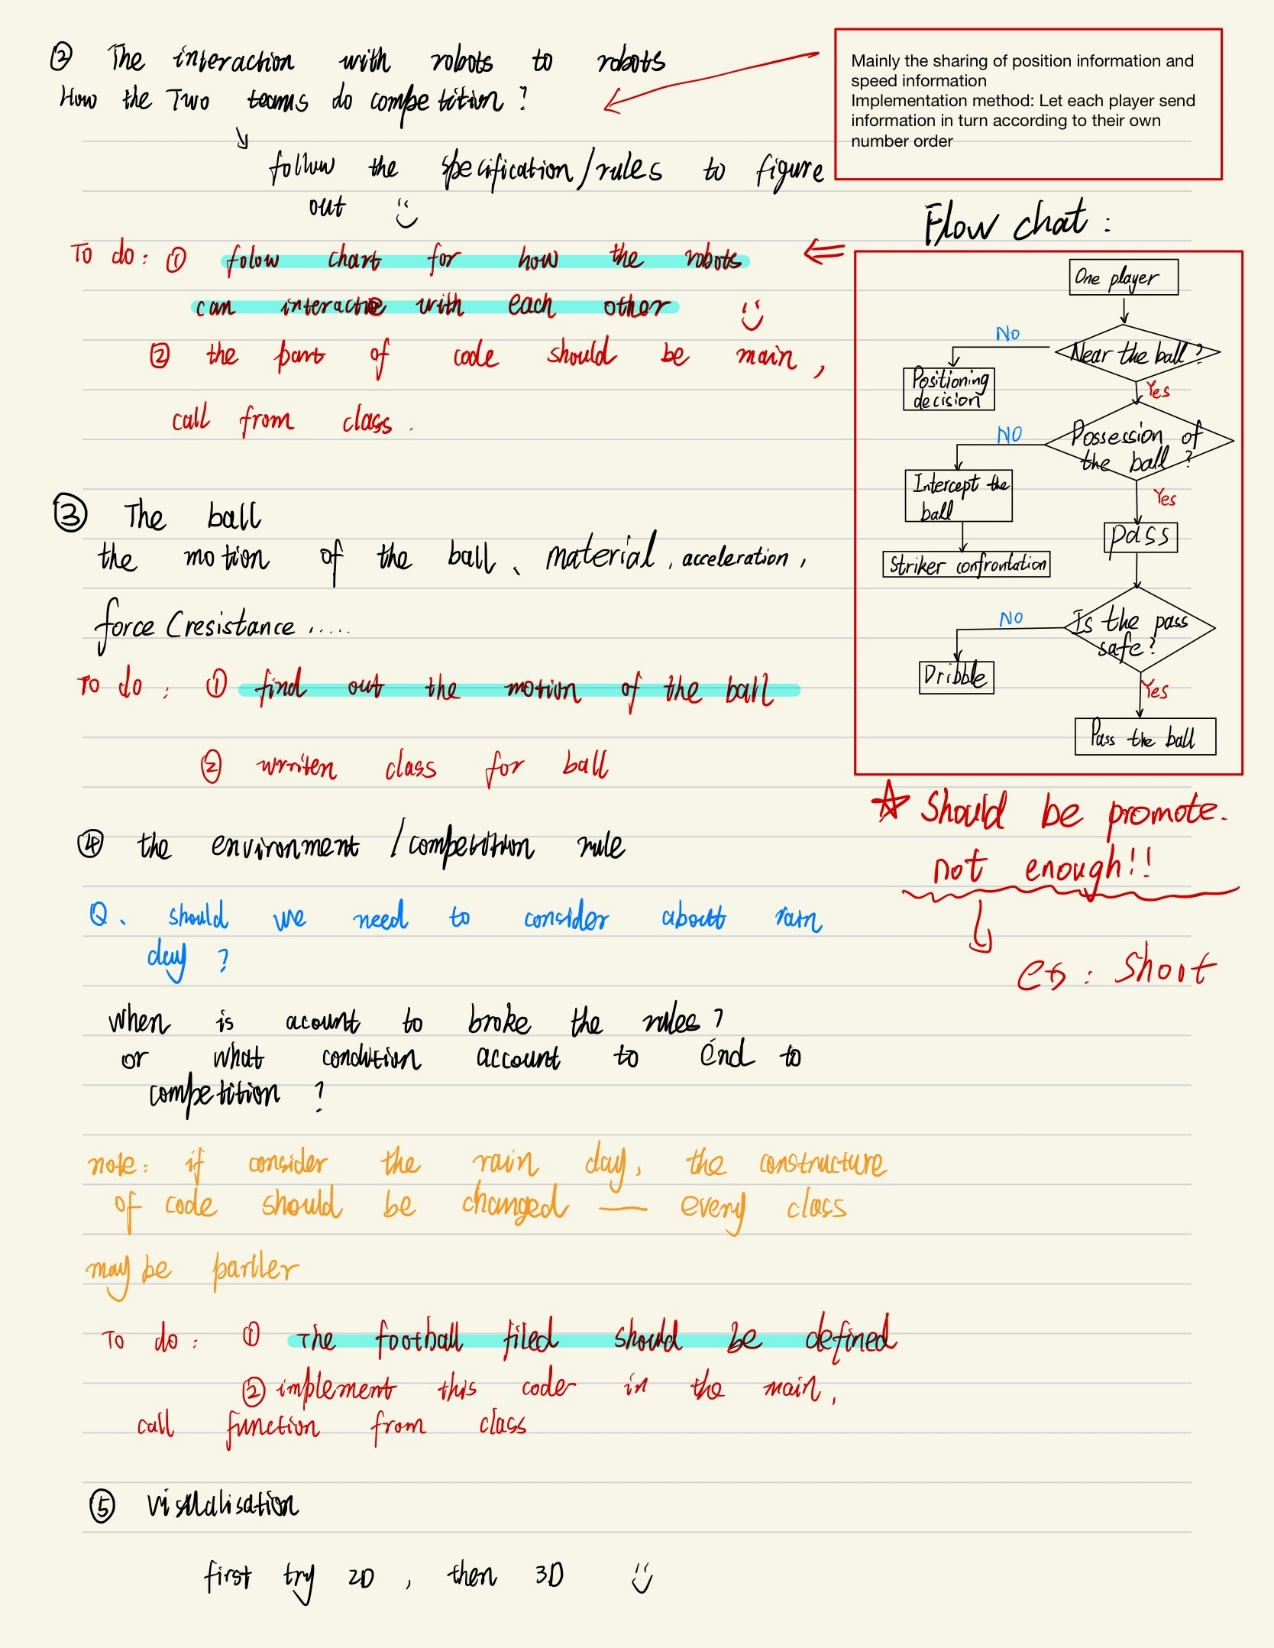 ② The interaction with robots to robots
How the Two teams do competition?
follow the specification/rules to figure
out
Mainly the sharing of position information and
speed information
Implementation method: Let each player send
information in turn according to their own
number order
To do: ① folow chart for how the robots
can interactve with each other
② the part of code should be main,
call from class.
Flow chat:
One player
Near the ball?
No
Positioning
decision
Yes
Possession of
the ball?
NO
Intercept the
ball
Striker confrontation
Yes
pass
Is the pass
safe?
NO
Dribble
Yes
Pass the ball
☆ Should be promote.
not enough!!
eg: Shoot
③ The ball
the motion of the ball、material, acceleration,
force Cresistance .....
To do: ① find out the motion of the ball
② writen class for ball
④ the environment / competition rule
Q. should we need to consider about rain
day?
when is acount to broke the rules?
or what condition account to end to
competition?
note: if consider the rain day, the constructure
of code should be changed — every class
may be
To do: ① The football filed should be defined
② implement this code in the main,
call function from class
⑤ visualisation
first try 2D, then 3D